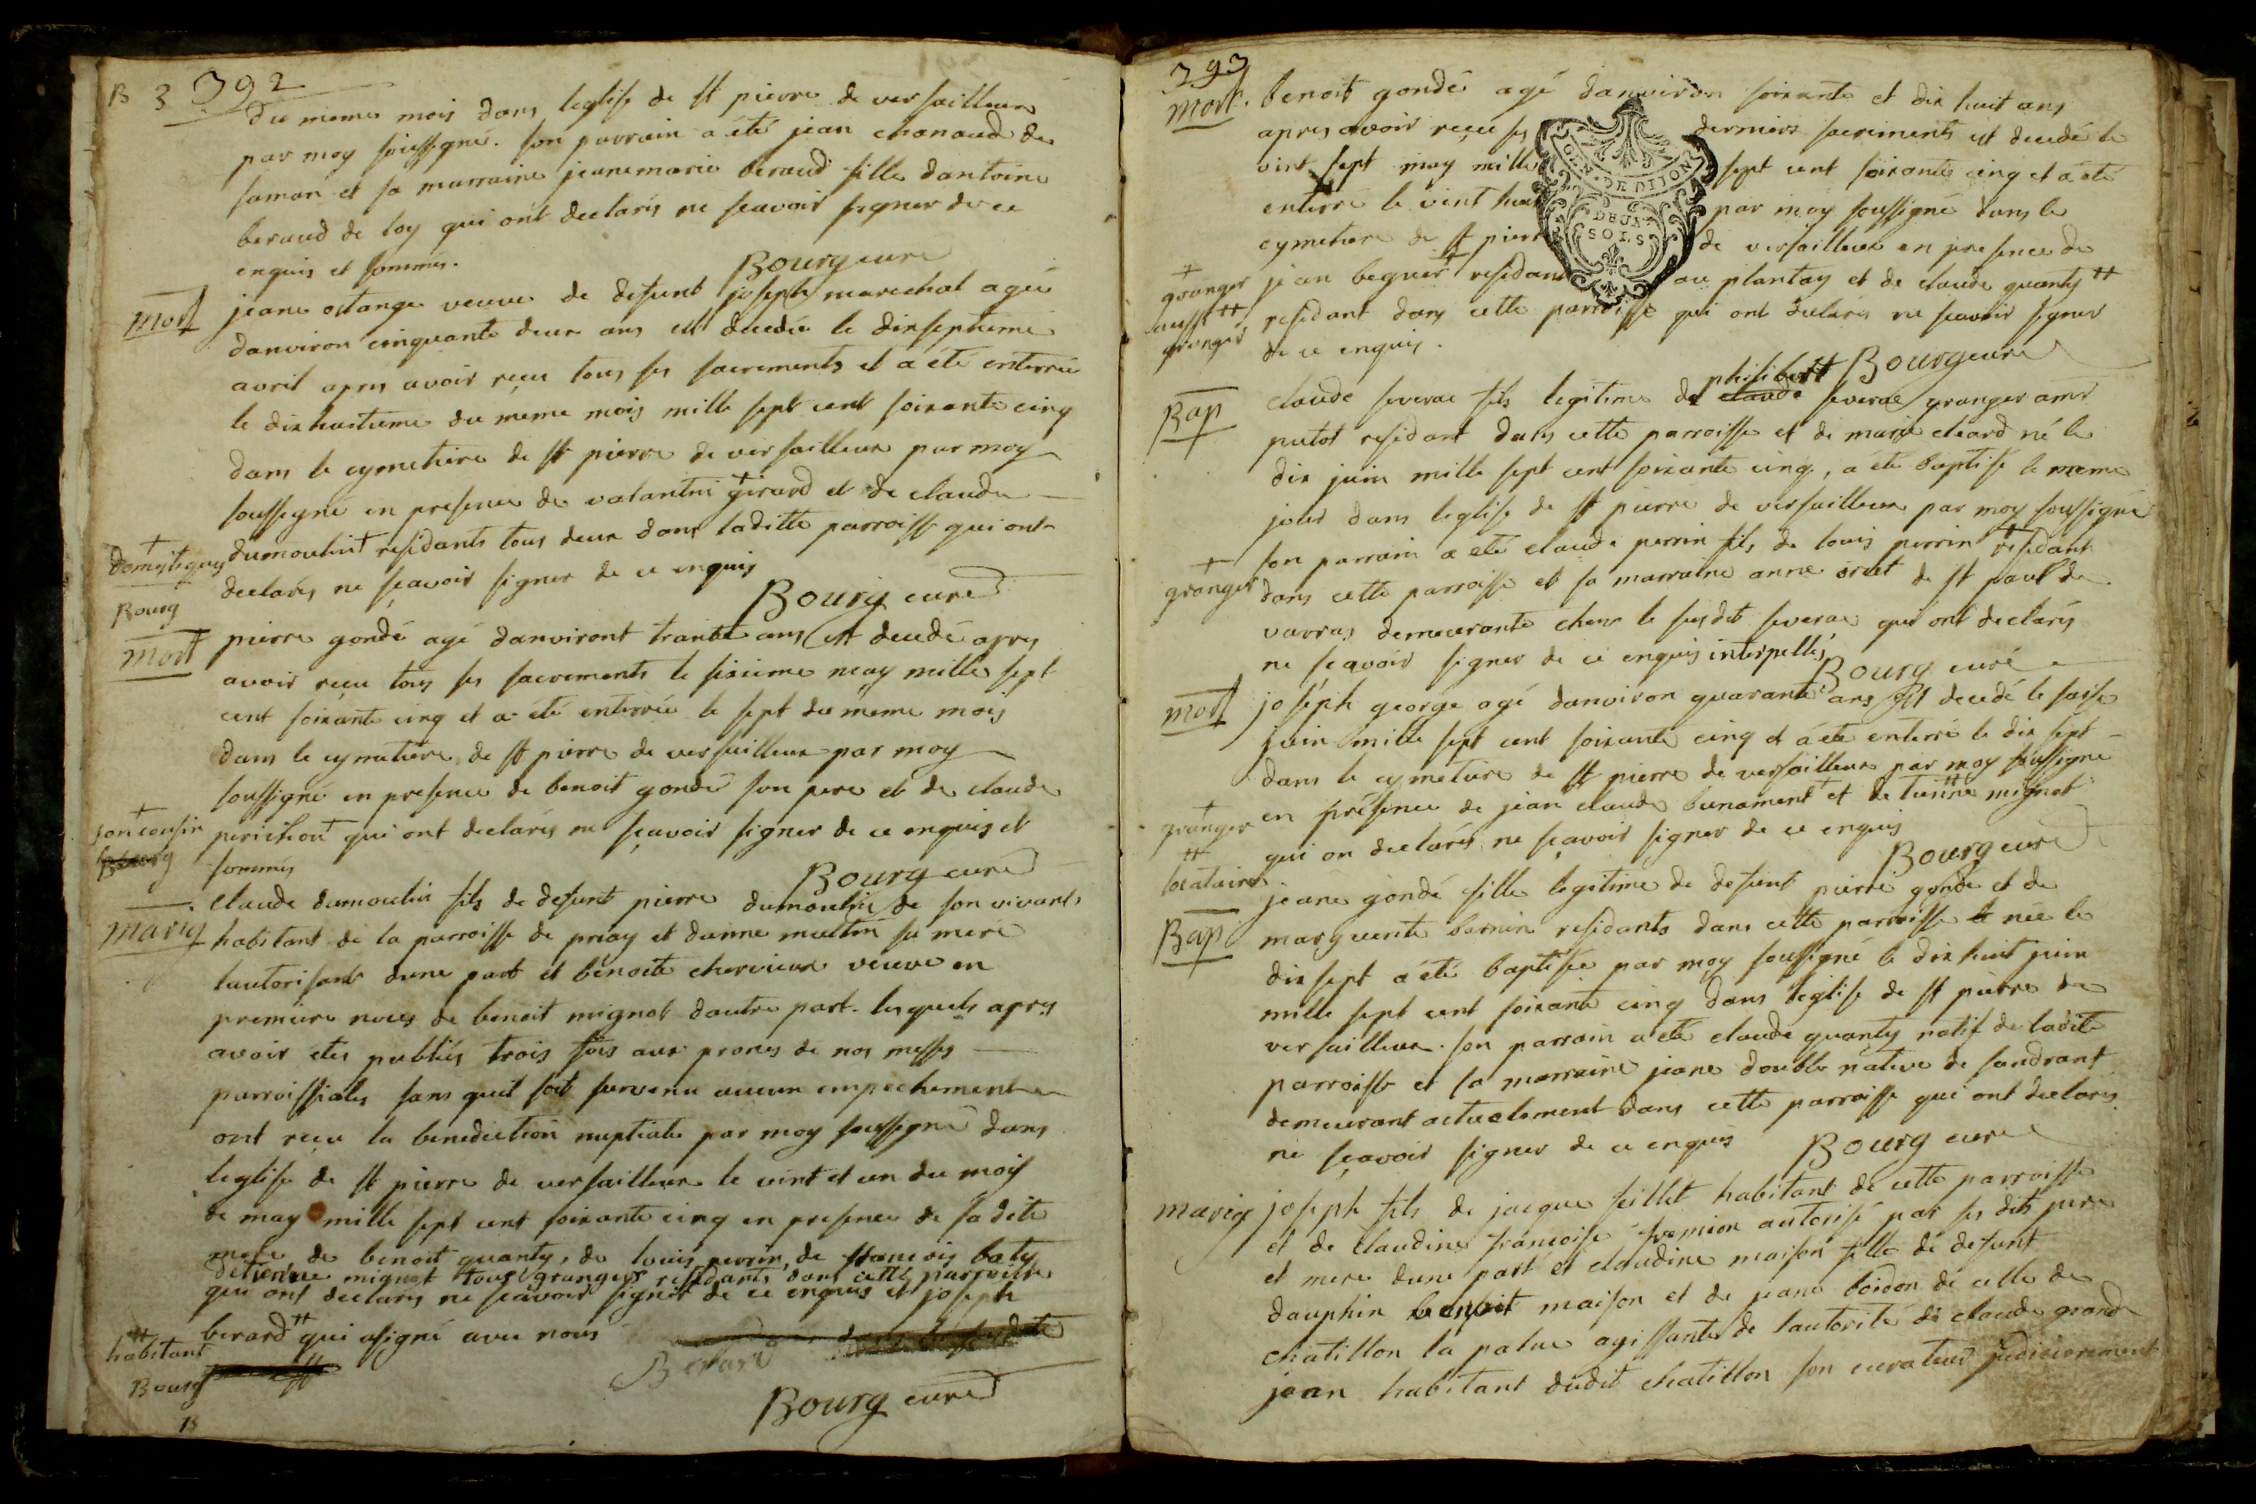 B 3 392
du meme mois dans leglise de st pierre de versailleux
par moy soussigné. son parrain a été jean chanaud de
saman et sa marraine jeanemarie beraud fille dantoine
beraud de loy qui ont declarés ne sçavoir signer de ce
enquis et sommés.
Bourg curé
mort
jeane ostange veuve de defunt joseph marechal agée
danviron cinquante deux ans est decedée le dixseptieme
avril apres avoir reçu tous ses sacrements et a été enterrée
le dix huitieme du meme mois mille sept cent soixante cinq
dans le cymetiere de st pierre de versailleux par moy
soussigné en presence de valantin girard et de claude
+ domestiques
dumoulin + residants tous deux dans laditte parroisse qui ont
Bourg
declarés ne sçavoir signer de ce enquis
Bourg curé
mort
pierre gondé agé danviront trante ans est decedé apres
avoir reçu tous ses sacrements le sixieme may mille sept
cent soixante cinq et a été enterrée le sept du meme mois
dans le cymetiere de st pierre de versailleux par moy
soussigné en presence de benoit gondé son pere et de claude
+ son cousin
perichon + qui ont declarés ne sçavoir signer de ce enquis et
Bourg
sommés
Bourg curé
mariq
claude dumoulin fils de defunt pierre dumoulin de son vivant
habitant de la parroisse de priay et danne muttin sa mere
lautorisant dune part et benoite chervieux veuve en
premiere noces de benoit mignot dautre part. lesquels apres
avoir etes publiés trois fois aux prones de nos messes
parroissiales sans quil soit survenu aucun empechement
ont reçu la benediction nuptiale par moy soussigné dans
leglise de st pierre de versailleux le vint et un du mois
de may mille sept cent soixante cinq en presence de sa dite
mere de benoit quanty, de louis perrin, de francois baty
detienne mignot tous grangers residants dans cette parroisse
qui ont declarés ne sçavoir signer de ce enquis et joseph
++ habitant
berard ++ qui a signé avec nous
Berard
Bourg
Bourg curé
18
393
mort.
benoit gondé agé danviron soixante et dix huit ans
apres avoir reçu ses derniers sacrements est decedé le
vint sept may mille sept cent soixante cinq et a été
enterré le vint huit par moy soussigné dans le
cymetiere de st pierre de versailleux en presence de
+ granger
jean beguet + residant au plantay et de claude quanty ++
aussi ++ granger
residant dans cette parroisse qui ont declarés ne sçavoir signer
de ce enquis.
Bourg curé
GEN. DE DIJON
DEUX
SOLS
Bap
claude feverae fils legitime de philibert claude feverae granger amr
putot residant dans cette parroisse et de marie cleard né le
dix juin mille sept cent soixante cinq, a été baptisé le meme
jour dans leglise de st pierre de versailleux par moy soussigné
son parrain a été claude perrin fils de louis perrin + residant
+ granger
dans cette parroisse et sa marraine anne oriet de st paul de
varras demeurante chez le susdit feverae qui ont declarés
ne sçavoir signer de ce enquis interpellés
Bourg curé
mort
joseph george agé danviron quarante ans est decedé le saise
juin mille sept cent soixante cinq et a été enterré le dix sept
dans le cymetiere de st pierre de versailleux par moy soussigné
+ granger
en présence de jean claude bunament + et de ++ mignot
++ locataire
qui on declarés ne sçavoir signer de ce enquis
Bourg curé
Bap
jeane gondé fille legitime de defunt pierre gondé et de
marguerite bernin residants dans cette parroisse née le
dix sept a été baptisée par moy soussigné le dix huit juin
mille sept cent soixante cinq dans leglise de st pierre de
versailleux. son parrain a été claude quanty natif de ladite
parroisse et sa marraine jeane double native de sandrant
demeurant actuelement dans cette parroisse qui ont declarés
ne sçavoir signer de ce enquis
Bourg curé
mariq
joseph fils de jacque feillet habitant de cette parroisse
et de claudine francoise fromion autorisé par ses dits pere
et mere dune part et claudine maison fille de defunt
dauphin benoit maison et de jeane boidon de celle de
chatillon la palue agissante de lautorité de claude grand
jean habitant dudit chatillon son curateur judicierement